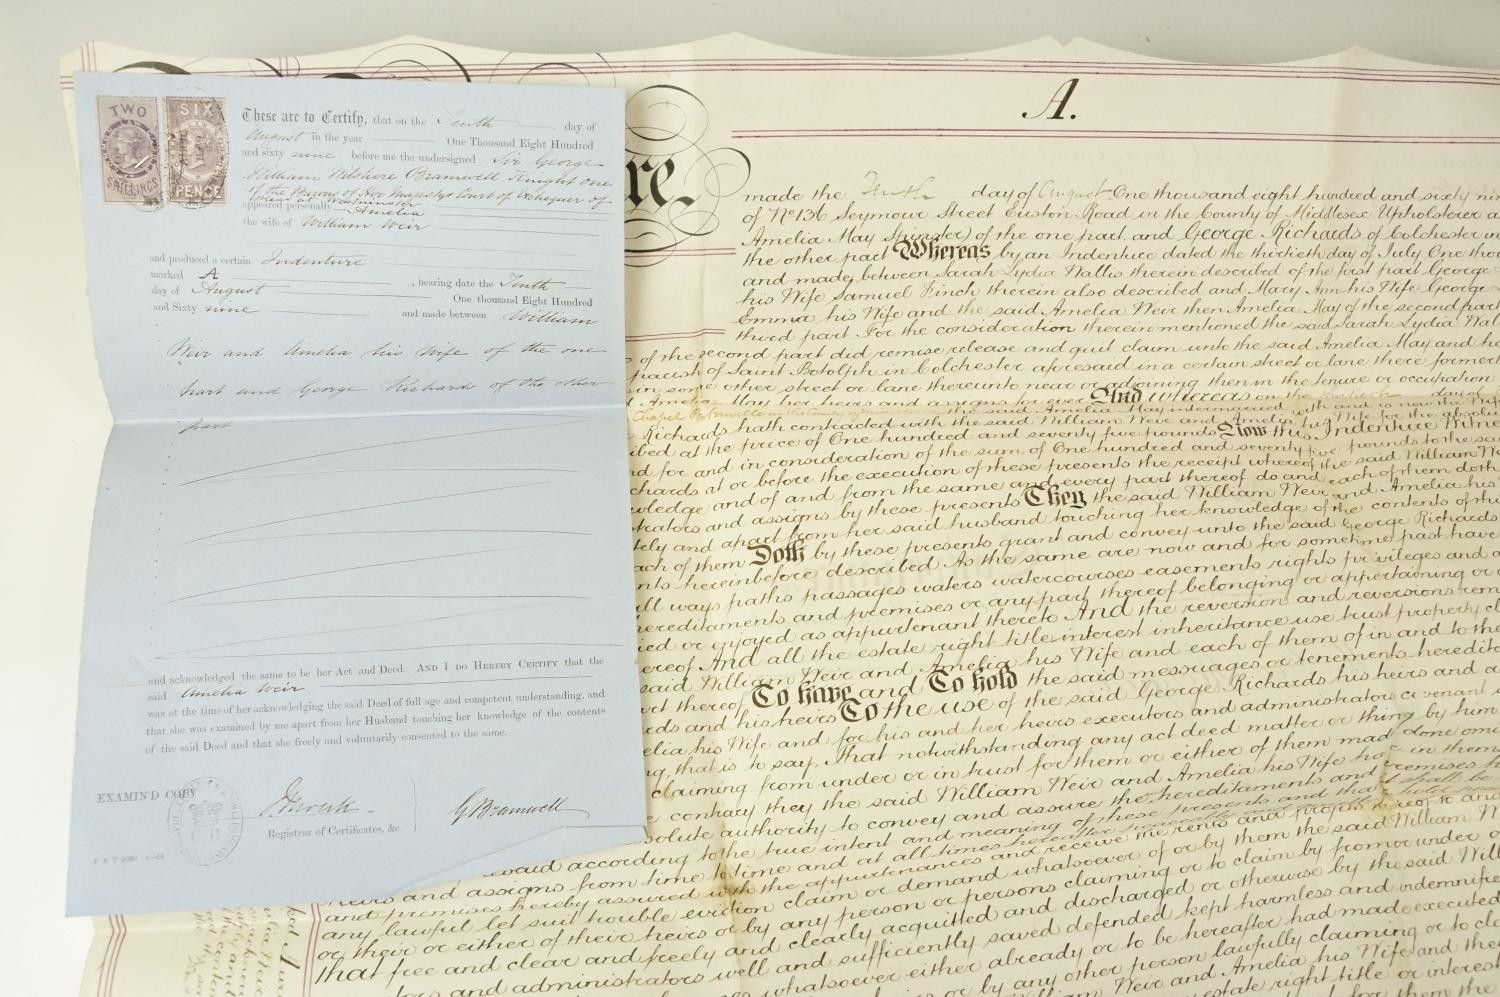 TWO
SHILLINGS
SIX
PENCE
These are to Certify, that on the Tenth day of
August in the year One Thousand Eight Hundred
and sixty nine before me the undersigned Sir George
William Wilshere Bramwell Knight one
of the Barons of Her Majestys Court of Exchequer of
Pleas at Westminster
appeared personally Amelia
the wife of William Weir
and produced a certain Indenture
marked A , bearing date the Tenth
day of August One thousand Eight Hundred
and Sixty nine and made between William
Weir and Amelia his wife of the one
part and George Richards of the other
part
and acknowledged the same to be her Act and Deed. AND I DO HEREBY CERTIFY that the
said Amelia Weir
was at the time of her acknowledging the said Deed of full age and competent understanding, and
that she was examined by me apart from her Husband touching her knowledge of the contents
of the said Deed and that she freely and voluntarily consented to the same.
EXAMIND COPY
Registrar of Certificates, &c.
G Bramwell
A.
re
made the Tenth day of August One thousand eight hundred and sixty nin
of No 136 Seymour Street Euston Road in the County of Middlesex Upholsterer a
Amelia May Spinster) of the one part and George Richards of Colchester in
the other part Whereas by an Indenture dated the thirtieth day of July One thou
and made between Sarah Lydia Wallis therein described of the first part George
his Wife Samuel Finch therein also described and Mary Ann his Wife George
Emma his Wife and the said Amelia Weir then Amelia May of the second part
third part For the consideration therein mentioned the said Sarah Lydia Wal
of the second part did remise release and quit claim unto the said Amelia May and he
parish of Saint Botolph in Colchester aforesaid in a certain street or lane there former
in some other street or lane thereunto near or adjoining then in the tenure or occupation
Amelia May her heirs and assigns for ever And whereas on the day of
Chapel Pentonville in the County of Middlesex the said Amelia May intermarried with and is now the Wife
Richards hath contracted with the said William Weir and Amelia his Wife for the absolu
ibed at the price of One hundred and seventy five pounds Now this Indenture Witne
d for and in consideration of the sum of One hundred and seventy five pounds to the sai
chards at or before the execution of these presents the receipt whereof the said William We
wledge and of and from the same and every part thereof do and each of them doth
trators and assigns by these presents They the said William Weir and Amelia his
tely and apart from her said husband touching her knowledge of the contents of this
ach of them Doth by these presents grant and convey unto the said George Richards
nts hereinbefore described As the same are now and for sometime past have
ll ways paths passages waters watercourses easements rights privileges and a
ereditaments and premises or any part thereof belonging or appertaining or
ied or enjoyed as appurtenant thereto And the reversion and reversions rem
ereof And all the estate right title interest inheritance use trust property cl
said William Weir and Amelia his Wife and each of them of in and to the
rt thereof To have and To hold the said messuages or tenements heredita
rds and his heirs To the use of the said George Richards his heirs and a
elia his Wife and for his and her heirs executors and administrators covenant
ng, that is to say, That notwithstanding any act deed matter or thing by him
claiming from under or in trust for them or either of them made done omi
e contrary they the said William Weir and Amelia his Wife in them
solute authority to convey and assure the hereditaments and premises h
said according to the true intent and meaning of these presents and that it shall be
heirs and assigns from time to time and at all times hereafter peaceably and quietly to hold
and premises hereby assured with the appurtenances and receive the rents and profits thereof to and
any lawful let suit trouble eviction claim or demand whatsoever of or by them the said William W
or their or either of their heirs or by any person or persons claiming or to claim by from or under
that free and clear and freely and clearly acquitted and discharged or otherwise by the said Will
tors and administrators well and sufficiently saved defended kept harmless and indemnifie
whatsoever either already or to be hereafter had made executed
or by any other person lawfully claiming or to cla
William Weir and Amelia his Wife and the
estate right title or interest
for them the